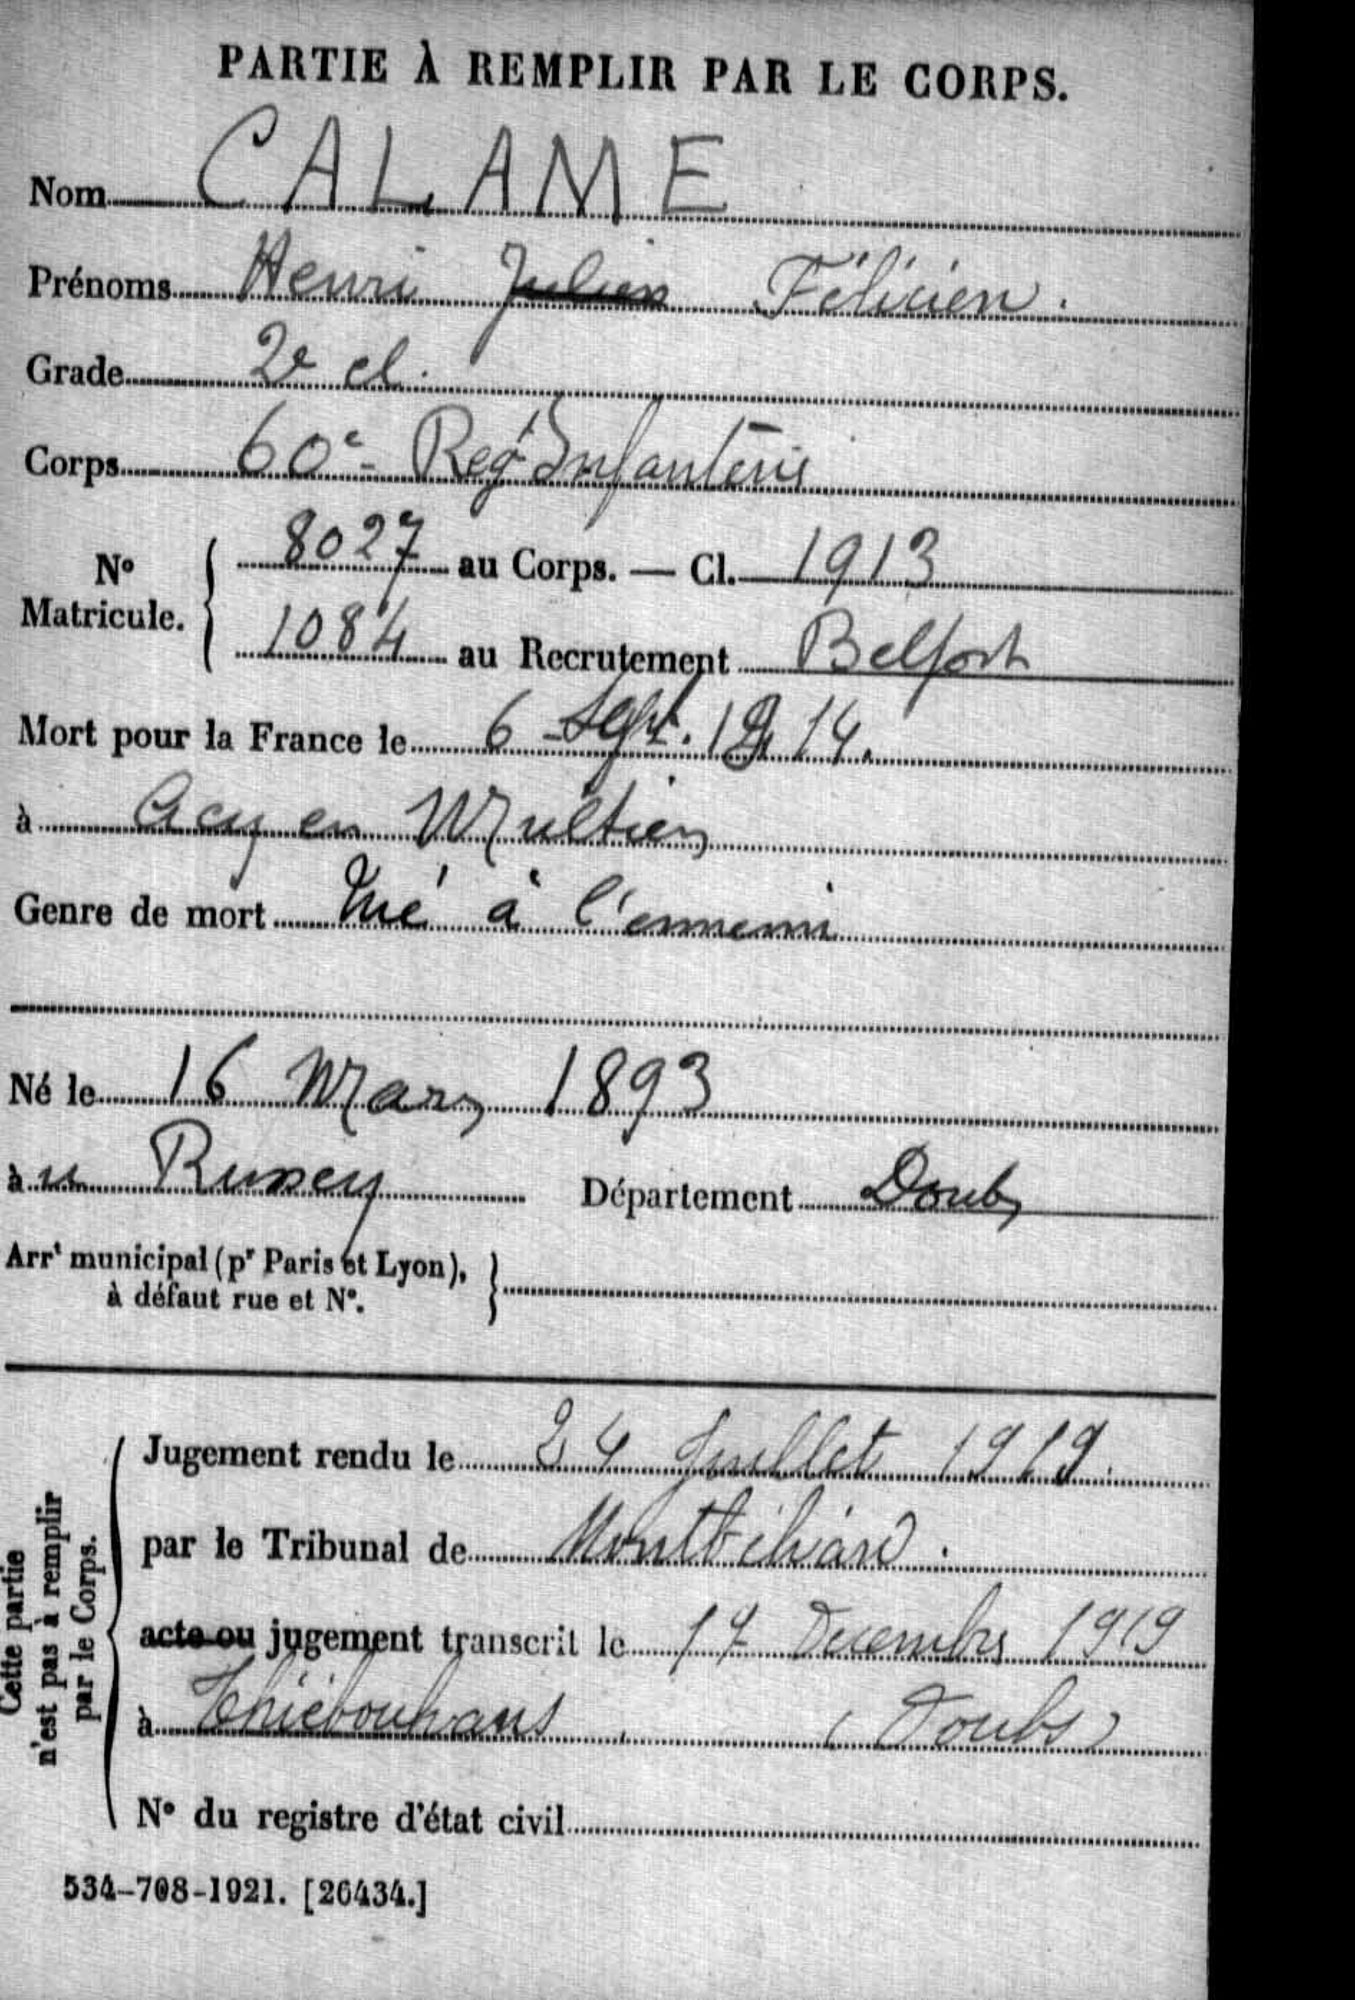 PARTIE À REMPLIR PAR LE CORPS.
Nom CALAME
Prénoms Henri Julien Félicien.
Grade 2e cl.
Corps 60e Rég' Infanterie
No Matricule. 8027 au Corps. — Cl. 1913
1084 au Recrutement Belfort
Mort pour la France le 6 Sept. 1914.
à Acy en Multien
Genre de mort Tué à l'ennemi
Né le 16 Mars 1893
à Département Doubs
Arrt municipal (pr Paris et Lyon), à défaut rue et No.
Cette partie n'est pas à remplir par le Corps.
Jugement rendu le 24 Juillet 1919.
par le Tribunal de Montbéliard.
acte ou jugement transcrit le 17 Décembre 1919
à Thiébouhans (Doubs)
No du registre d'état civil
534-708-1921. [26434.]